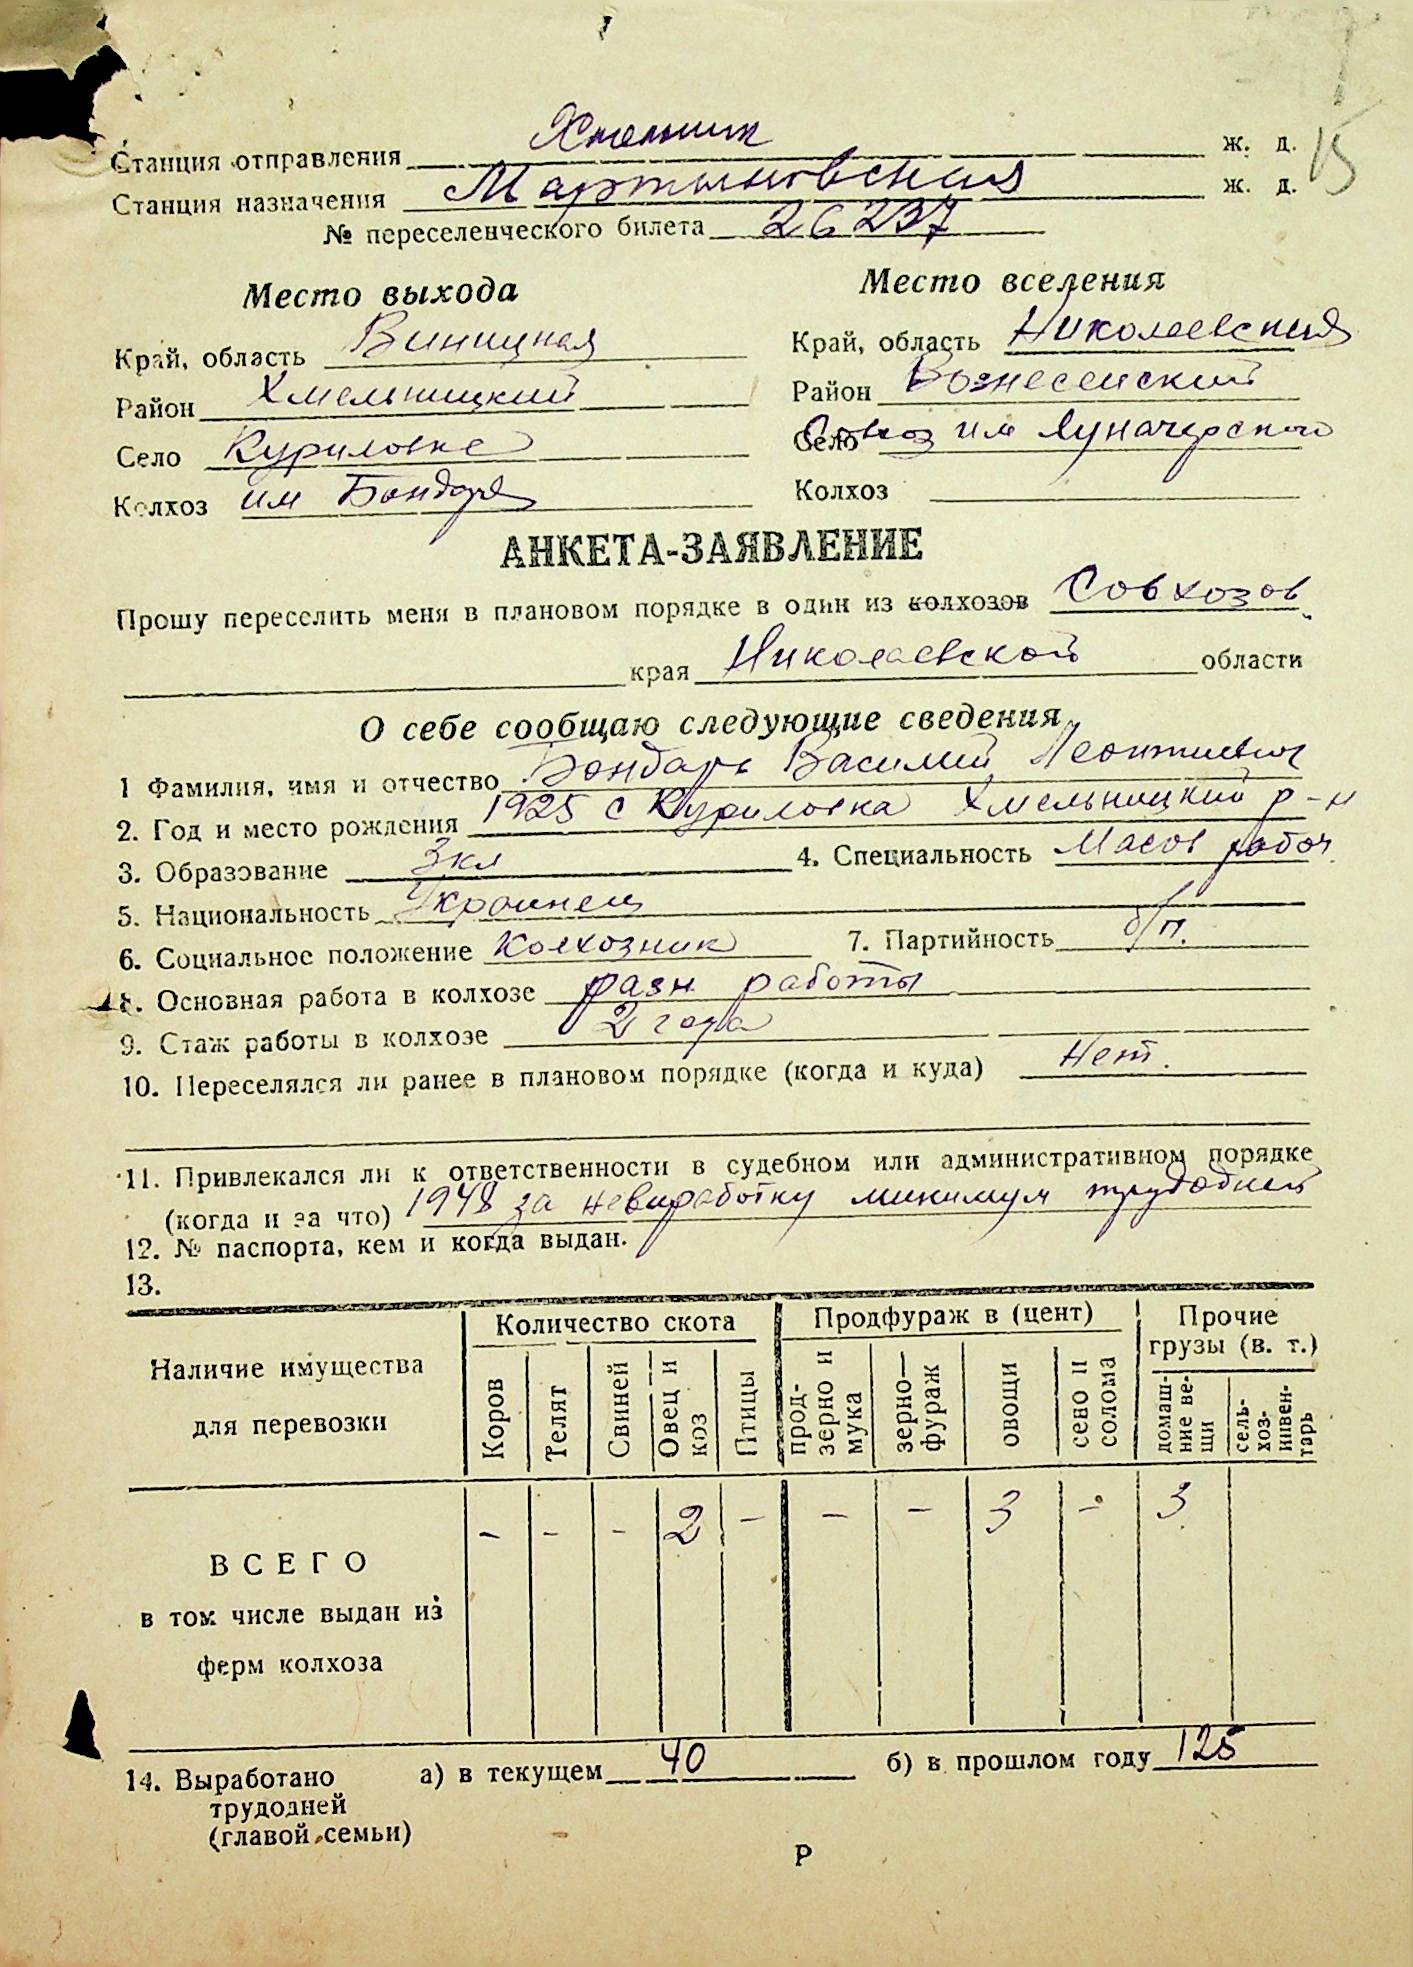 15
Станция отправления Хмельник ж. д.
Станция назначения Мартыновская ж. д.
№ переселенческого билета 26237
Место выхода Место вселения
Край, область Виницкая Край, область Николаевская
Район Хмельницкий Район Вознесенский
Село Куриловка Село Совхоз им Луначарского
Колхоз им Бондаря Колхоз
АНКЕТА-ЗАЯВЛЕНИЕ
Прошу переселить меня в плановом порядке в один из колхозов Совхозов
края Николаевской области
О себе сообщаю следующие сведения
1 Фамилия, имя и отчество Бондарь Василий Леонтиевич
2. Год и место рождения 1925 с Куриловка Хмельницкий р-н
3. Образование 3кл 4. Специальность Масов рабоч
5. Национальность Украинец
6. Социальное положение Колхозник 7. Партийность б/п.
8. Основная работа в колхозе разн работы
9. Стаж работы в колхозе 2 года
10. Переселялся ли ранее в плановом порядке (когда и куда) Нет.
11. Привлекался ли к ответственности в судебном или административном порядке
(когда и за что) 1948 за невиработку минимум трудодней
12. № паспорта, кем и когда выдан.
13.
Наличие имущества для перевозки Количество скота Продфураж в (цент) Прочие грузы (в. т.)
Коров Телят Свиней Овец и коз Птицы прод-зерно и мука зерно—фураж овощи сено и солома домаш-ние ве-щи сель-хоз-инвен-тарь
- - - 2 - - - 3 - 3
ВСЕГО
в том числе выдан из
ферм колхоза
14. Выработано а) в текущем 40 б) в прошлом году 125
трудодней
(главой семьи)
Р